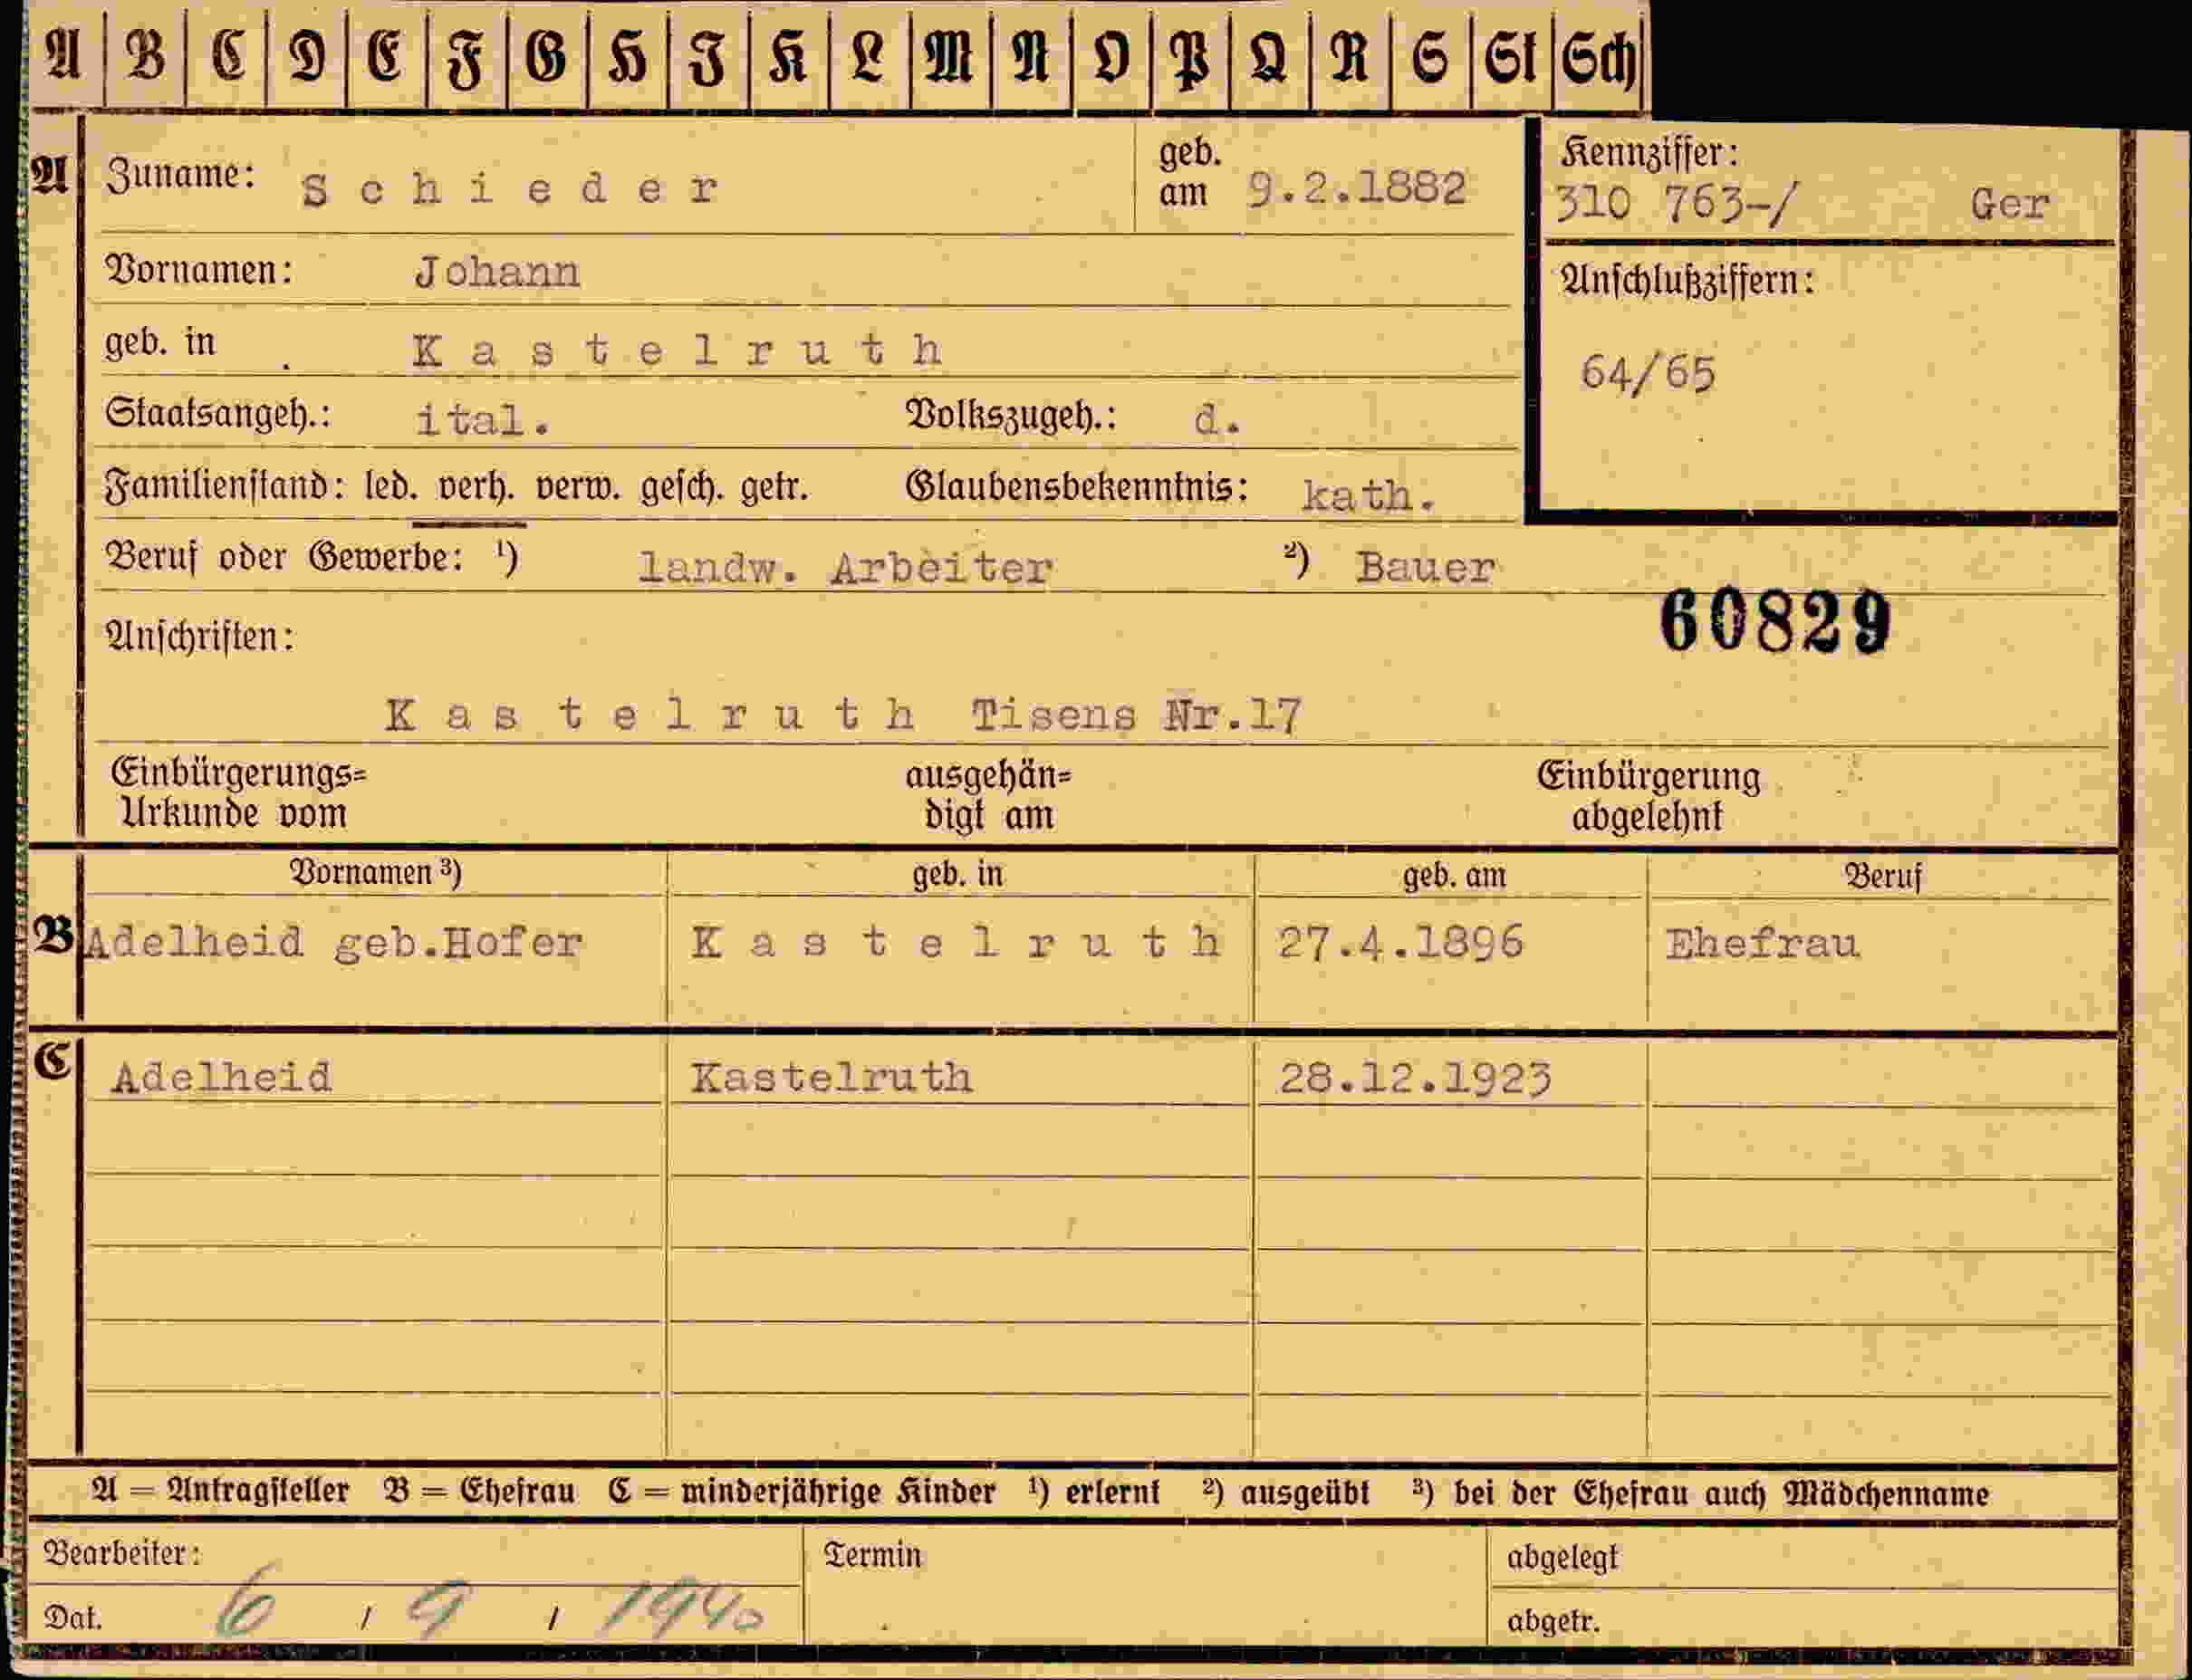 A B C D E F G H I K L M N O P Q R S St Sch
A Zuname: Schieder geb. am 9.2.1882 Kennziffer:
310 763-/ Ger
Vornamen: Johann Anschlußziffern:
geb. in Kastelruth
64/65
Staatsangeh.: ital. Volkszugeh.: d.
Familienstand: led. verh. verw. gesch. getr. Glaubensbekenntnis: kath.
Beruf oder Gewerbe: ¹) landw. Arbeiter ²) Bauer
60829
Anschriften:
Kastelruth Tisens Nr.17
Einbürgerungs= ausgehän= Einbürgerung
Urkunde vom digt am abgelehnt
Vornamen ³) geb. in geb. am Beruf
B Adelheid geb.Hofer Kastelruth 27.4.1896 Ehefrau
C Adelheid Kastelruth 28.12.1923
A = Antragsteller B = Ehefrau C = minderjährige Kinder ¹) erlernt ²) ausgeübt ³) bei der Ehefrau auch Mädchenname
Bearbeiter: Termin abgelegt
Dat. 6 / 9 / 1940 abgetr.